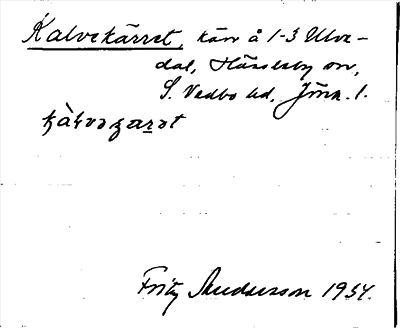 Kalvekärret, kärr å 1-3 Ulve-
dal, Hässleby sn,
S. Vedbo hd, Jönk. l.
kàlvəçarət
Fritz Andersson 1934.